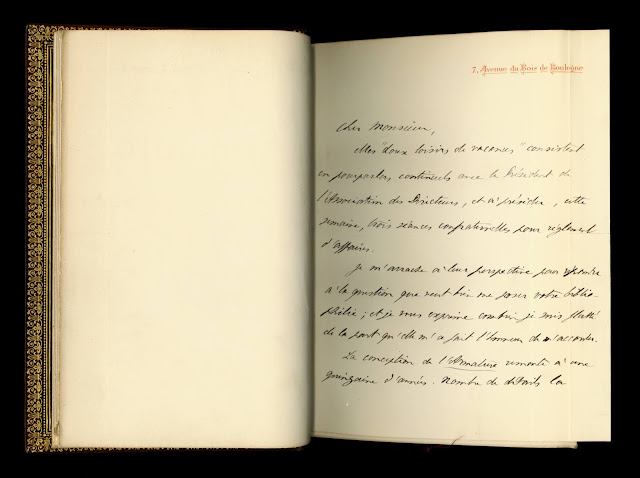 7, Avenue du Bois de Boulogne
Cher Monsieur,
Mes "doux loisirs de vacances" consistent
en pourparlers continuels avec le Président de
l'Association des Directeurs, et à présider, cette
semaine, trois séances confraternelles pour règlement
d'affaires.
Je m'arrache à leur perspective pour répondre
à la question que veut bien me poser votre biblio-
philie ; et je vous exprime combien je suis flatté
de la part qu'elle m'a fait l'honneur de m'accorder.
La conception de l'Armature remonte à une
quinzaine d'années. Nombre de détails la